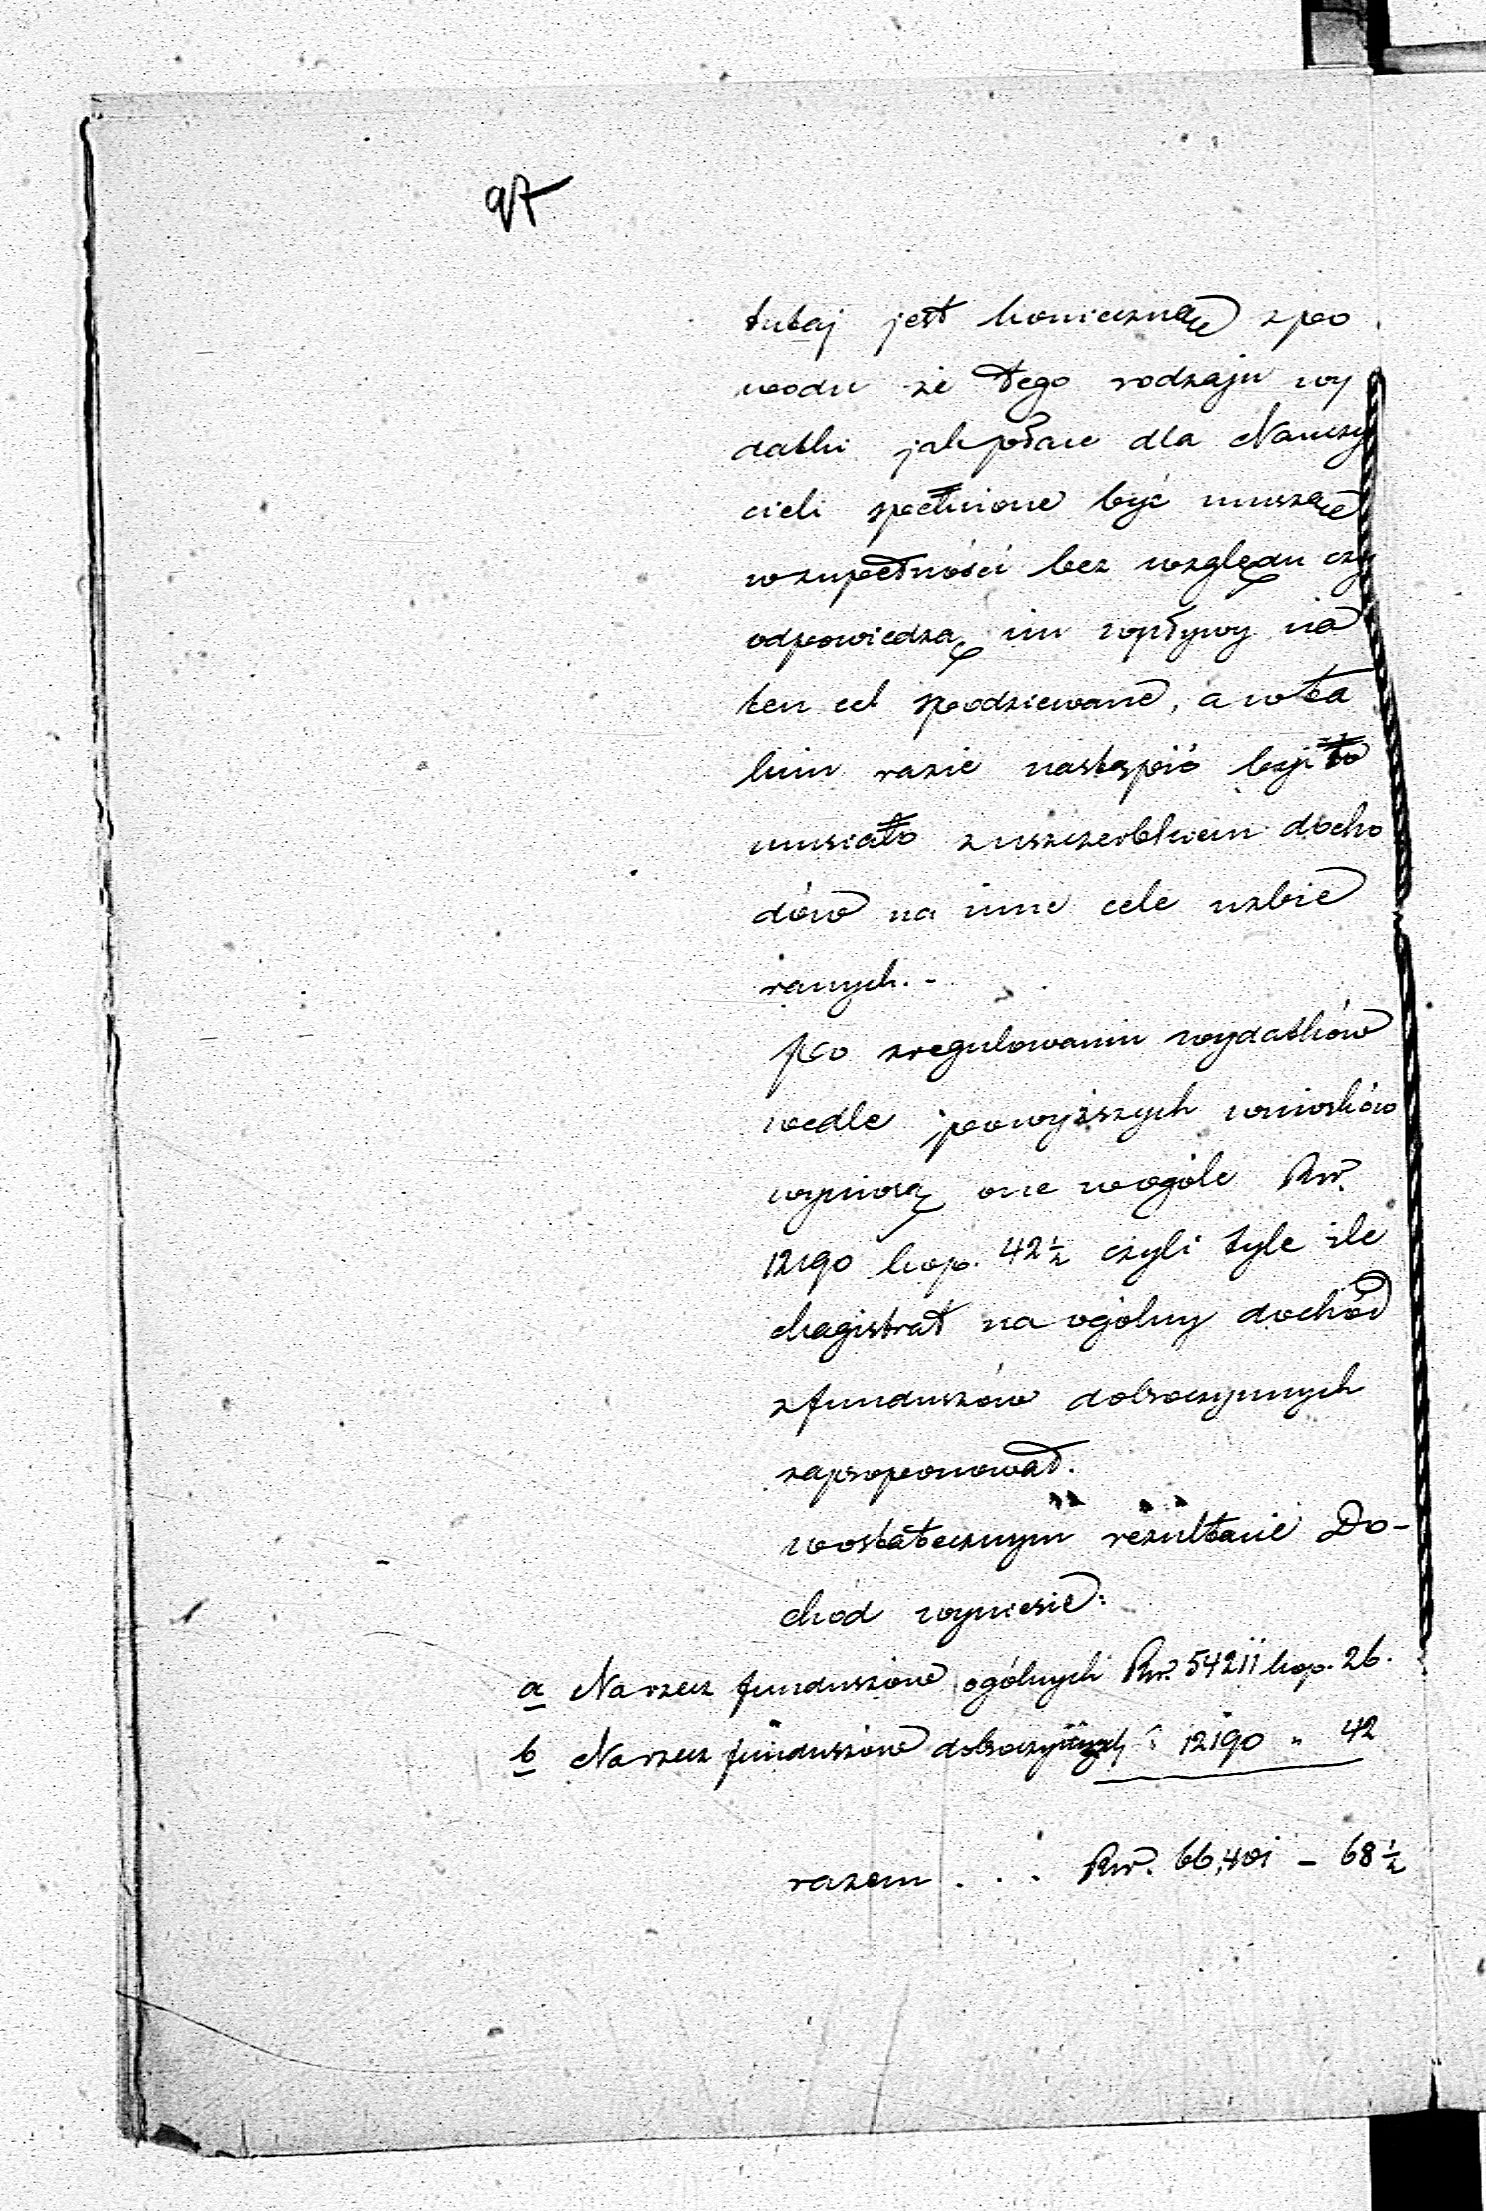 97
tutaj jest konieczną z po
wodu że tego rodzaju wy
datki jak płace dla Nauczy
cieli spełnione być muszą
w zupełności bez względu czy
odpowiedzą im wpływy na
ten cel spodziewane, a w ta
kim razie nastąpić by to
musiało z uszczerbkiem docho
dów na inne cele uzbie
ranych. -
Po uregulowaniu wydatków
wedle powyższych wniosków
wyniosą one w ogóle Rsr.
12190 kop. 42½ czyli tyle ile
Magistrat na ogólny dochód
z funduszów dobroczynnych
zaproponował.
w ostatecznym rezultacie Do-
chód wyniesie:
a Na rzecz funduszów ogólnych Rsr. 54211 kop. 26.
b Na rzecz funduszów dobroczynnych " 12190 " 42
razem . . . Rsr. 66,401 - 68½